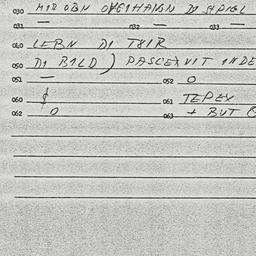 030 MIR OBN DI SPIGL
031 — 032 — 033 —
040 LEBN DI TSIR
050 DI BILD ) VIT INDE
051 — 052 O
060 $ 061 TEPEX
062 O 063 + BUT